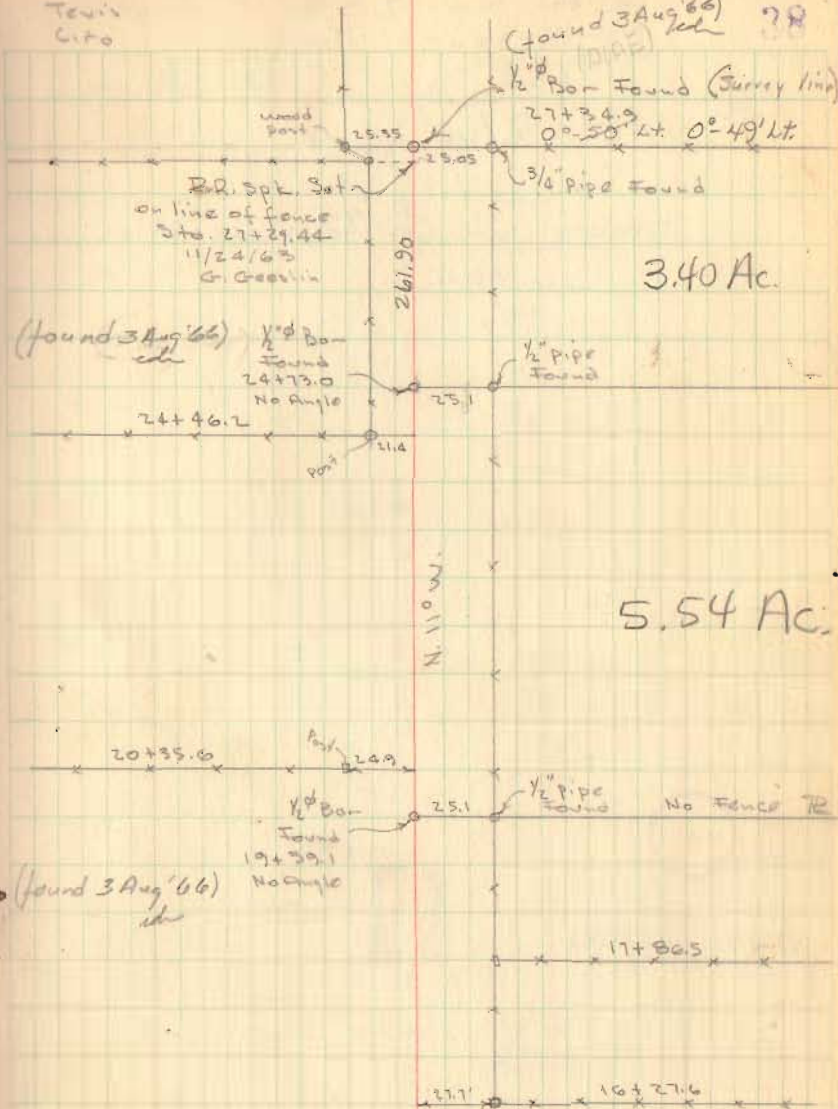 Tevis
Cito
38
(found 3 Aug '66)
1/2" ø Bar Found (Survey line)
27+34.9
0°-50' Lt. 0°-49' Lt.
wood
post
25.35
25.05
3/4" pipe Found
B.R. Spk. Set
on line of fence
Sta. 27+29.44
11/24/63
G. Geeslin
261.90
3.40 Ac.
(found 3 Aug '66)
1/2" ø Bar
Found
24+73.0
No Angle
1/2" pipe
Found
25.1
24+46.2
21.4
post
N. 11° W.
5.54 Ac.
20+35.6
Post
24.9
1/2" ø Bar
Found
19+39.1
No Angle
25.1
1/2" pipe
Found
No Fence
(found 3 Aug '66)
17+86.5
27.7'
16+27.6